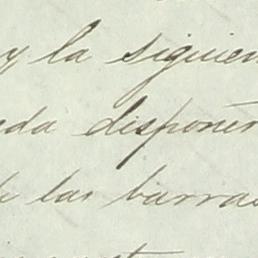 y la siguien
nda disponer
de las barras